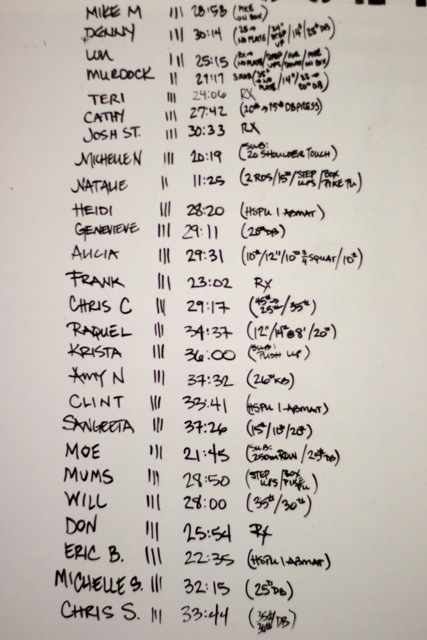 MIKE M ||| 28:58 (PIKE ON BOX)
DENNY ||| 30:14
||| 25:15
MURDOCK ||
TERI ||| 24:06 RX
CATHY ||| 27:42 (20# → 15# DB PRESS)
JOSH ST. ||| 30:33 RX
MICHELLE N ||| 20:19 (SUB: 20 SHOULDER TOUCH)
NATALIE || 11:25 (2 RDS/15#/STEP UPS/BOX PIKE PU)
HEIDI ||| 28:20 (HSPU 1 ABMAT)
GENEVIEVE ||| 29:11 (20# DB)
ALICIA ||| 29:31 (10#/12"/10# 3/4 SQUAT/10#)
FRANK ||| 23:02 Rx
CHRIS C ||| 29:17 (45# → 25#/35#)
RAQUEL ||| 34:37 (12"/14# @ 8'/20#)
KRISTA ||| 36:00 (SUB: PUSH UP)
AMY N ||| 37:32 (26# KB)
CLINT ||| 33:41 (HSPU 1 ABMAT)
SANGEETA ||| 37:26 (15#/10#/20#)
MOE ||| 21:45 (SUB: 250m ROW / 25# DB)
MUMS ||| 28:50 (STEP UPS/BOX PIKE PU)
WILL ||| 28:00 (35#/30#)
DON ||| 25:54 Rx
ERIC B. ||| 22:35 (HSPU 1 ABMAT)
MICHELLE S. ||| 32:15 (25# DB)
CHRIS S. ||| 33:44